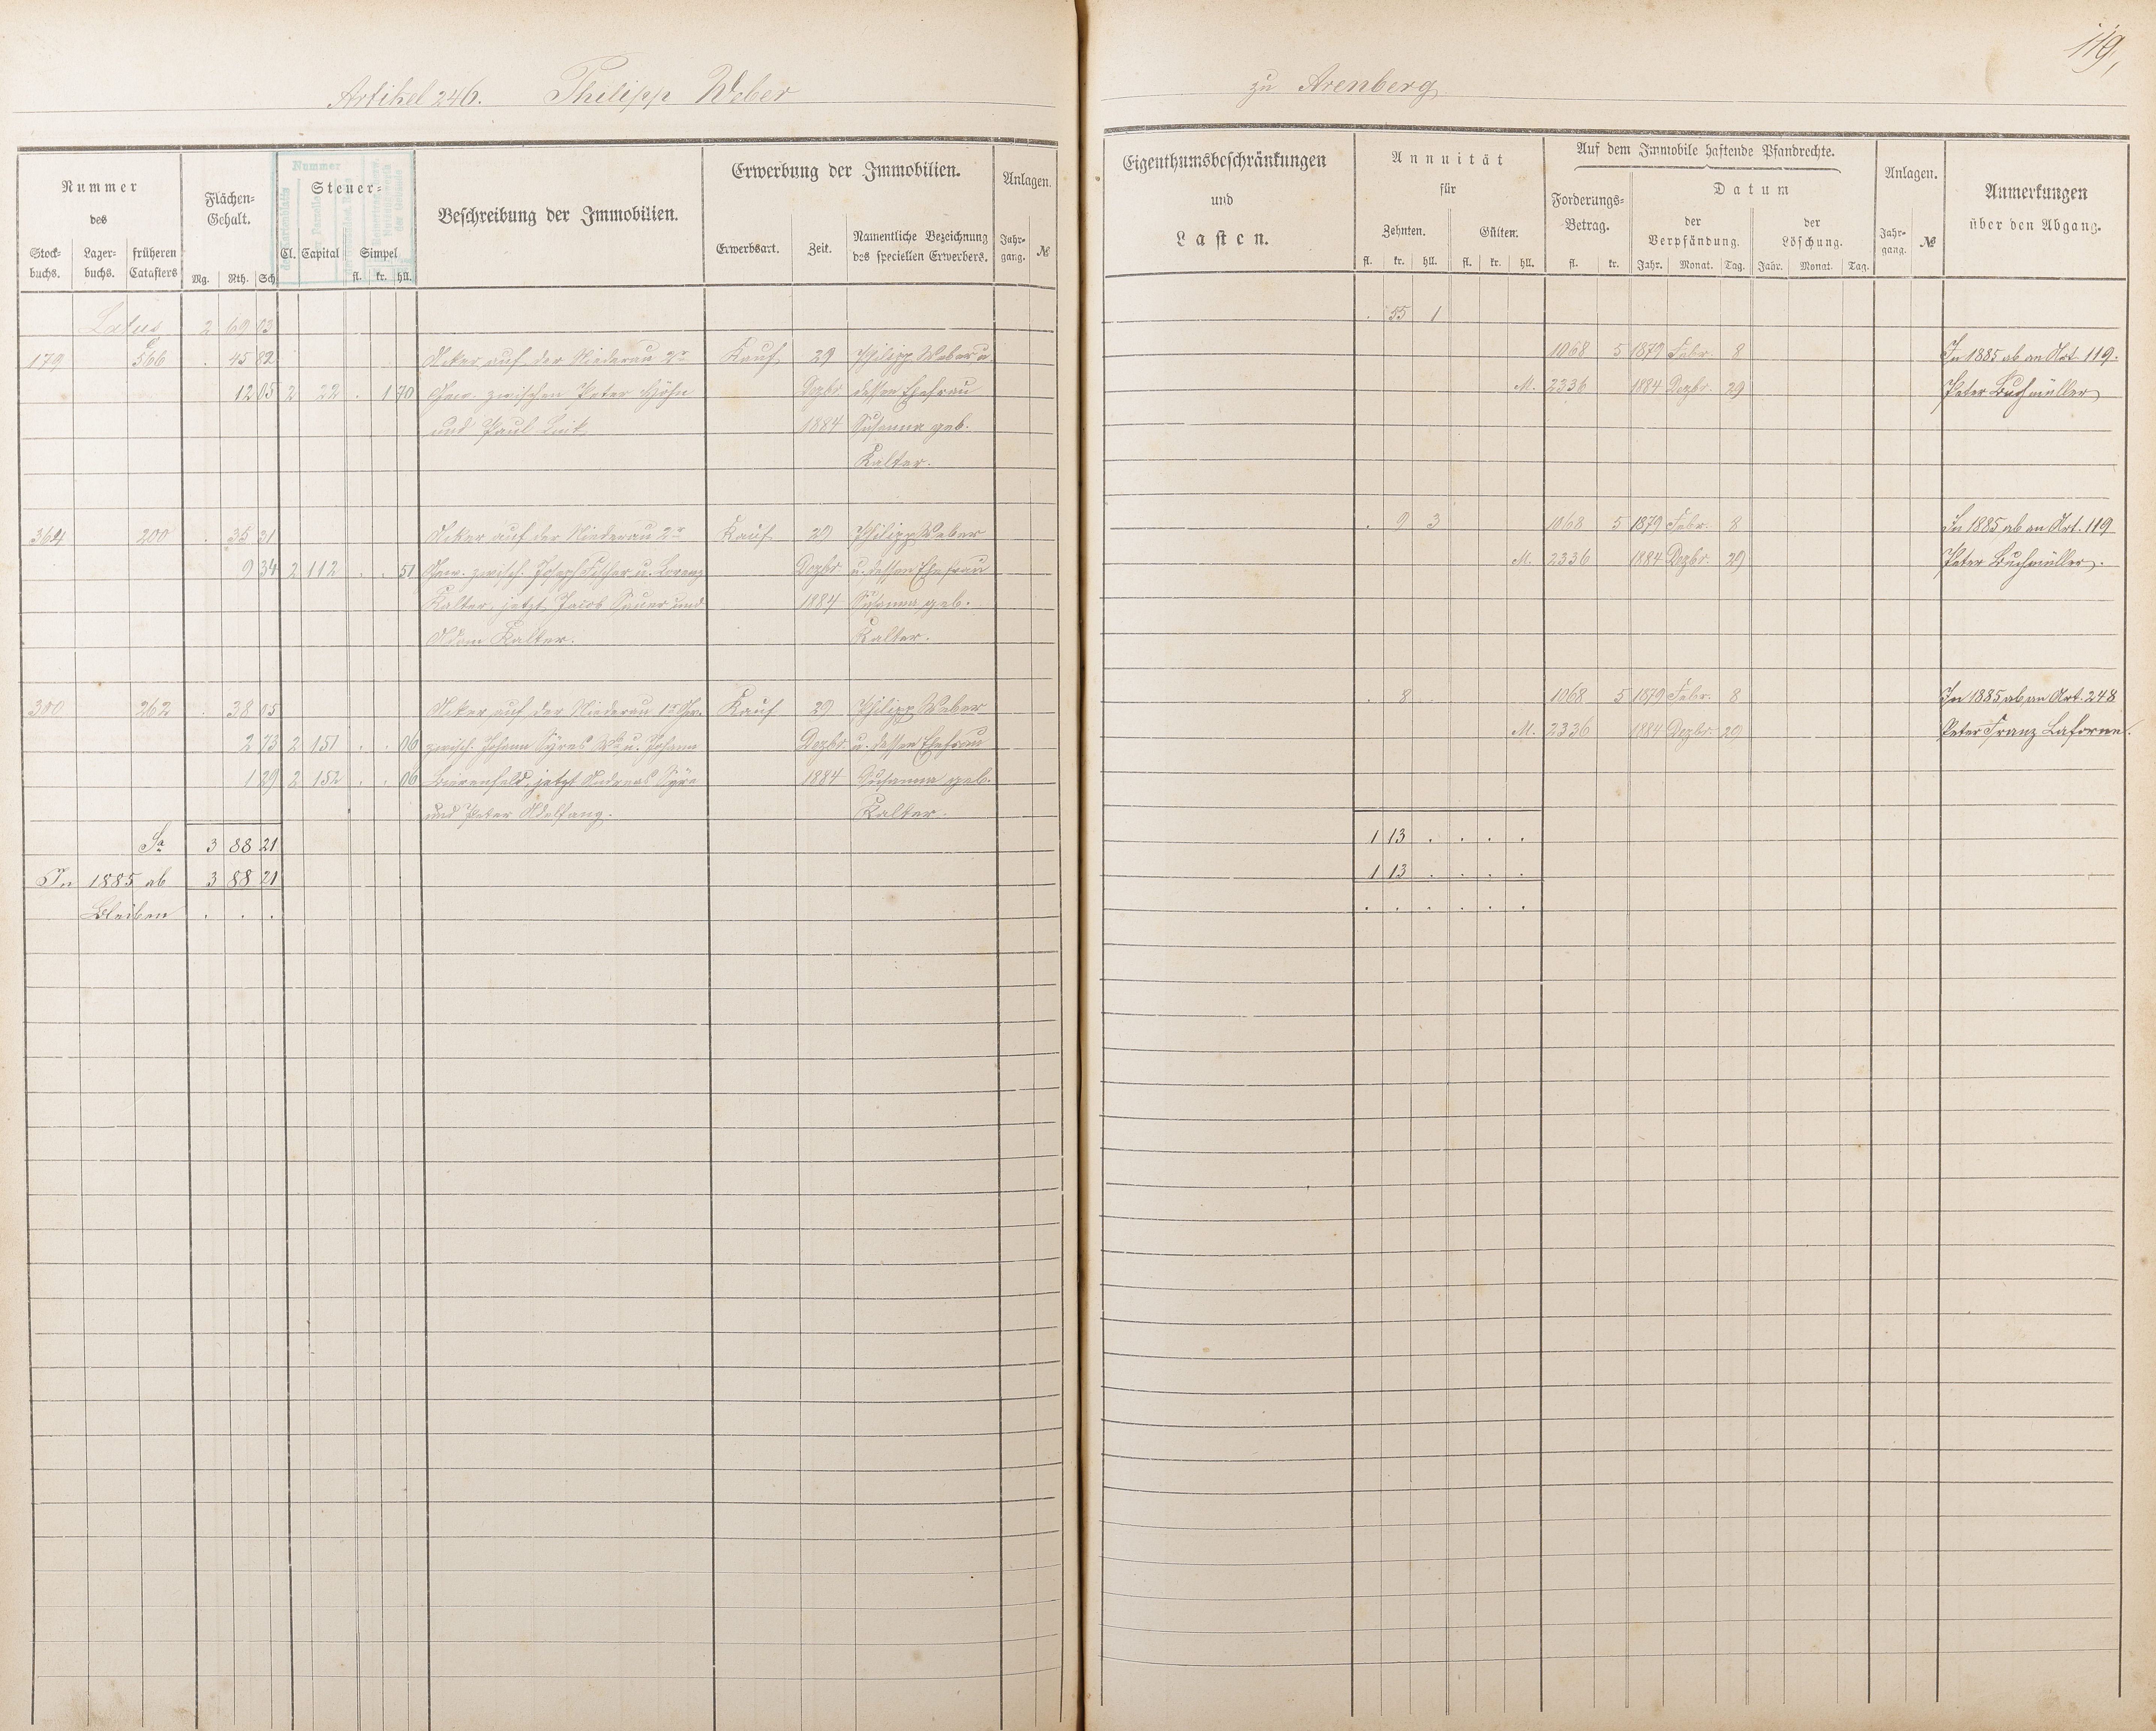 119,
Artikel 246. Philipp Weber zu Arenberg
Nummer
des
Stock-buchs. Lager-buchs. früheren Catasters
Flächen-Gehalt.
Mg. Rth. Sch.
Steuer-
Cl. Capital Simpel
fl. kr. hll.
Nummer
Beschreibung der Immobilien.
Erwerbung der Immobilien.
Erwerbsart. Zeit. Namentliche Bezeichnung des speciellen Erwerbers.
Anlagen.
Jahr-gang. №
Eigenthumsbeschränkungen
und
Lasten.
Annuität
für
Zehnten. Gülten.
fl. kr. hll. fl. kr. hll.
Auf dem Immobile haftende Pfandrechte.
Forderungs-Betrag.
fl. kr.
Datum
der Verpfändung. der Löschung.
Jahr. Monat. Tag. Jahr. Monat. Tag.
Anlagen.
Jahr-gang. №
Anmerkungen
über den Abgang.
Latus 2 69 03 . 55 1
179 566 . 45 82 Acker auf der Niederau 2r Kauf 29 Philipp Weber u. 1068 5 1879 Febr. 8 In 1885 ab an Art. 119.
12 05 2 22 . 1 70 Gew. zwischen Peter Höhn Dezbr. dessen Ehefrau M. 2336 1884 Dezbr. 29 Peter Buchmüller
und Paul 1884 Susanna geb.
Kalter.
364 200 . 35 31 Acker auf der Niederau 2r Kauf 29 Philipp Weber . 9 3 1068 5 1879 Febr. 8 In 1885 ab an Art. 119
9 34 2 112 . . 51 Gew. zwisch. Joseph Fischer u. Lorenz Dezbr. u. dessen Ehefrau M. 2336 1884 Dezbr. 29 Peter Buchmüller.
Kalter, jetzt Jacob Sauer und 1884 Susanna geb.
Adam Kalter. Kalter.
262 . 38 05 Acker auf der Niederau 1r Gew. Kauf 29 Philipp Weber . 8 . 1068 5 1879 Febr. 8 In 1885 ab an Art. 248
2 73 2 151 . . 06 zwisch. Johann Syres u. Johann Dezbr. u. dessen Ehefrau M. 2336 1884 Dezbr. 29 Peter Franz Laforme.
1 29 2 152 . . 06 jetzt Andreas Syre 1884 Susanna geb.
und Peter Adelfang. Kalter.
Sa. 3 88 21 1 13 . . . .
In 1885 ab 3 88 21 1 13 . . . .
Bleiben . . . . . . . . .